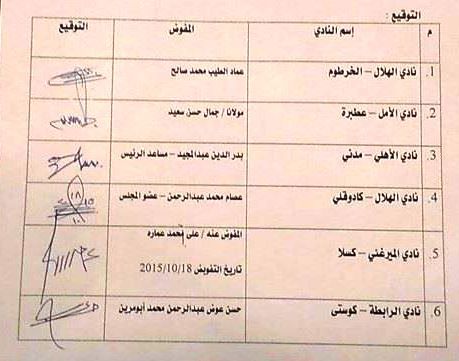 التوقيع :
م إسم النادي المفوض التوقيع
1. نادي الهلال – الخرطوم عماد الطيب محمد صالح
2. نادي الأمل – عطبرة مولانا / جمال حسن سعيد
3. نادي الأهلي – مدني بدر الدين عبدالمجيد – مساعد الرئيس
4. نادي الهلال – كادوقلي عصام محمد عبدالرحمن – عضو المجلس
5. نادي الميرغني – كسلا المفوض عنه / على محمد عماره
تاريخ التفويض 2015/10/18
6. نادي الرابطة – كوستى حسن عوض عبدالرحمن محمد أبومرين